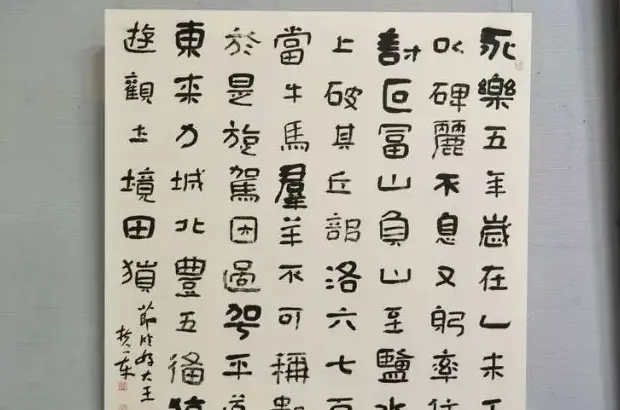 永樂五年歲在乙未
以碑麗不息又躬率住
討叵富山負山至鹽水
上破其丘部洛六七百
當牛馬羣羊不可稱數
於是旋駕因過平道
東来力城北豐五備猶
遊觀土境田獵
節临好大王